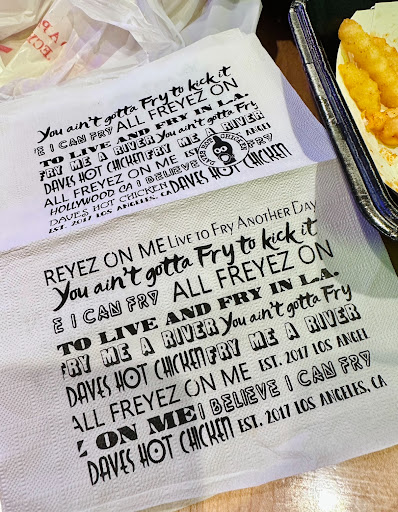 You ain't gotta Fry to kick it
E I CAN FRY ALL FREYEZ ON
TO LIVE AND FRY IN L.A.
FRY ME A RIVER You ain't gotta Fry
DAVES HOT CHICKEN FRY ME A RIVER
ALL FREYEZ ON ME EST. ANGEL
HOLLYWOOD CA I BELIEVE FRY
DAVES HOT CHICKEN DAVES HOT CHICKEN
EST. 2017 LOS ANGELES, CA
REYEZ ON ME LIVE TO FRY ANOTHER DAY
You ain't gotta Fry to kick it
E I CAN FRY ALL FREYEZ ON
TO LIVE AND FRY IN L.A.
FRY ME A RIVER You ain't gotta Fry
DAVES HOT CHICKEN FRY ME A RIVER
ALL FREYEZ ON ME EST. 2017 LOS ANGEL
Z ON ME I BELIEVE I CAN FRY
DAVES HOT CHICKEN EST. 2017 LOS ANGELES, CA